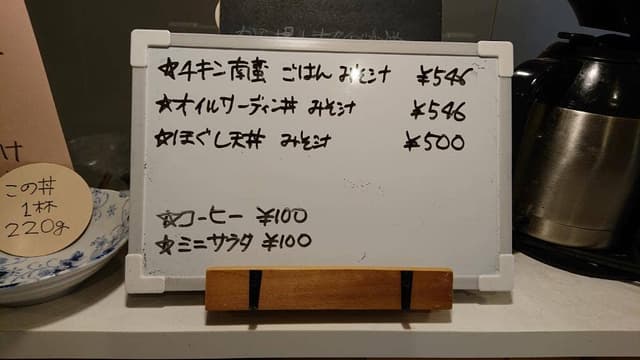 ☆チキン南蛮 ごはん みそ汁 ¥546
☆オイルサーディン丼 みそ汁 ¥546
☆ほぐし天丼 みそ汁 ¥500
☆コーヒー ¥100
☆ミニサラダ ¥100
この丼
1杯
220g
け